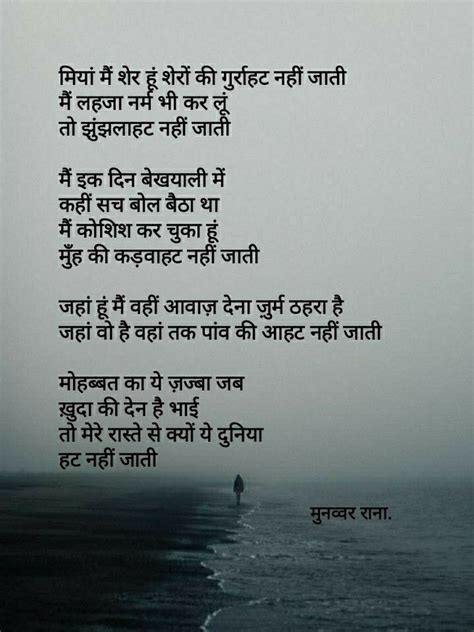 मियां मैं शेर हूं शेरों की गुर्राहट नहीं जाती
मैं लहजा नर्म भी कर लूं
तो झुंझलाहट नहीं जाती
मैं इक दिन बेखयाली में
कहीं सच बोल बैठा था
मैं कोशिश कर चुका हूं
मुँह की कड़वाहट नहीं जाती
जहां हूं मैं वहीं आवाज़ देना जु़र्म ठहरा है
जहां वो है वहां तक पांव की आहट नहीं जाती
मोहब्बत का ये ज़ज्बा जब
ख़ुदा की देन है भाई
तो मेरे रास्ते से क्यों ये दुनिया
हट नहीं जाती
मुनव्वर राना.